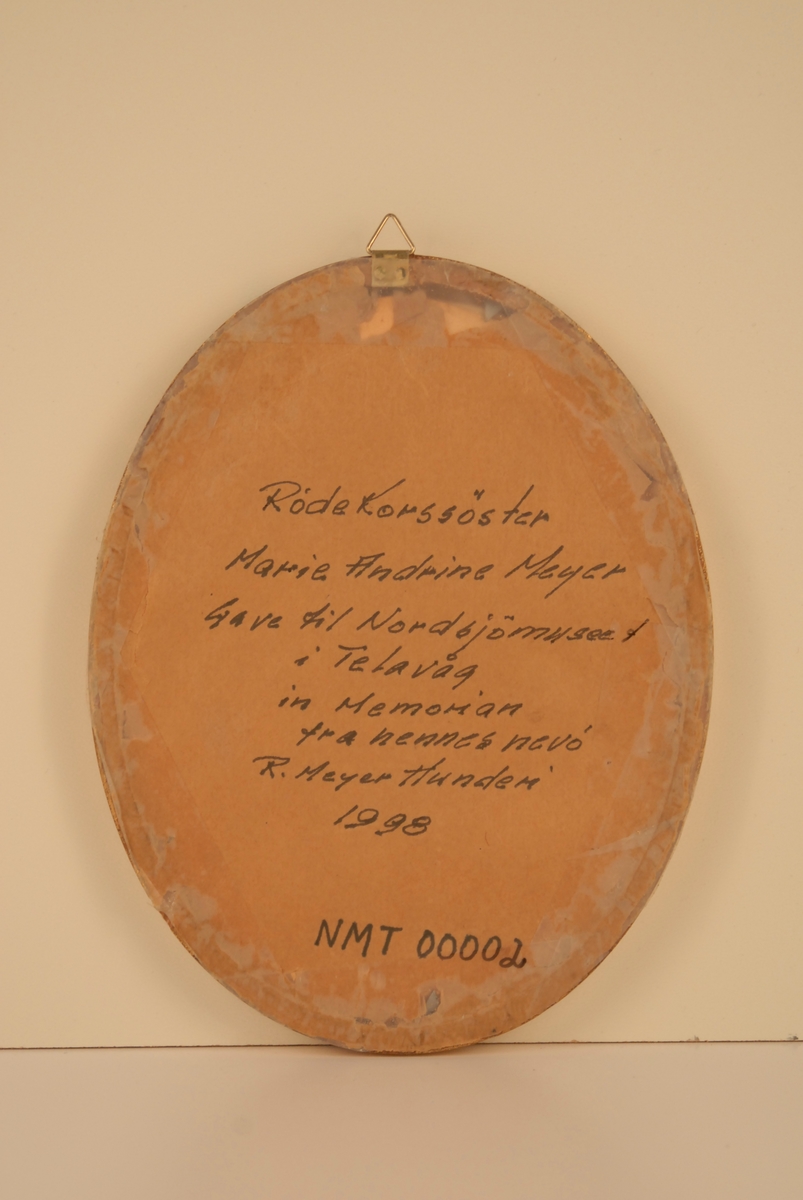 Röde Korssöster
Marie Andrine Meyer
Gave til Nordsjömuseet
i Telavåg
in Memorian
fra hennes nevö
R. Meyer Hunderi
1998
NMT 00002